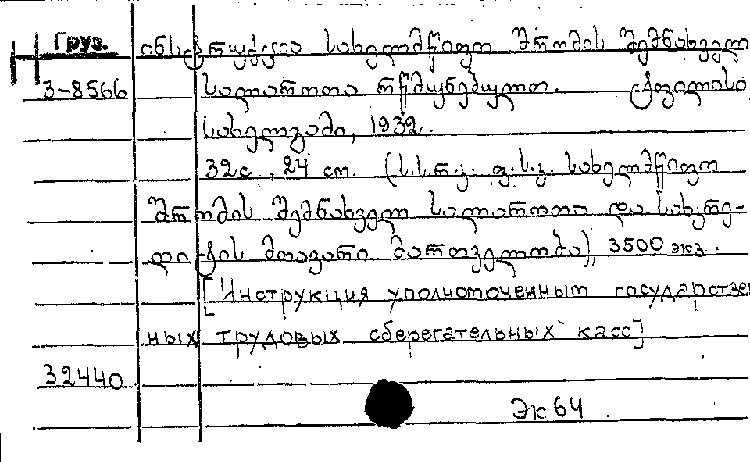 Груз. ინსტრუქცია სახელმწიფო შრომის შემნახველ
3-8566 სალაროთა რწმუნებულთა. ტფილისი
სახელგამი, 1932.
32 с., 24 см. (ს.ს.რ.კ. ფ.ს.კ. სახელმწიფო
შრომის შემნახველ სალაროთა და სახკრე-
დიტის მთავარი მართველობა), 3500 экз.
[Инструкция уполномоченным государствен
ных трудовых сберегательных касс]
32440
Эк 64